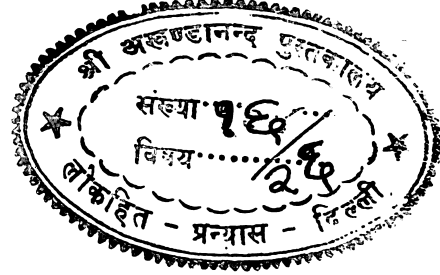 श्री अखण्डानन्द पुस्तकालय
संख्या १६/
विषय २६
लोकहित - प्रन्यास - दिल्ली